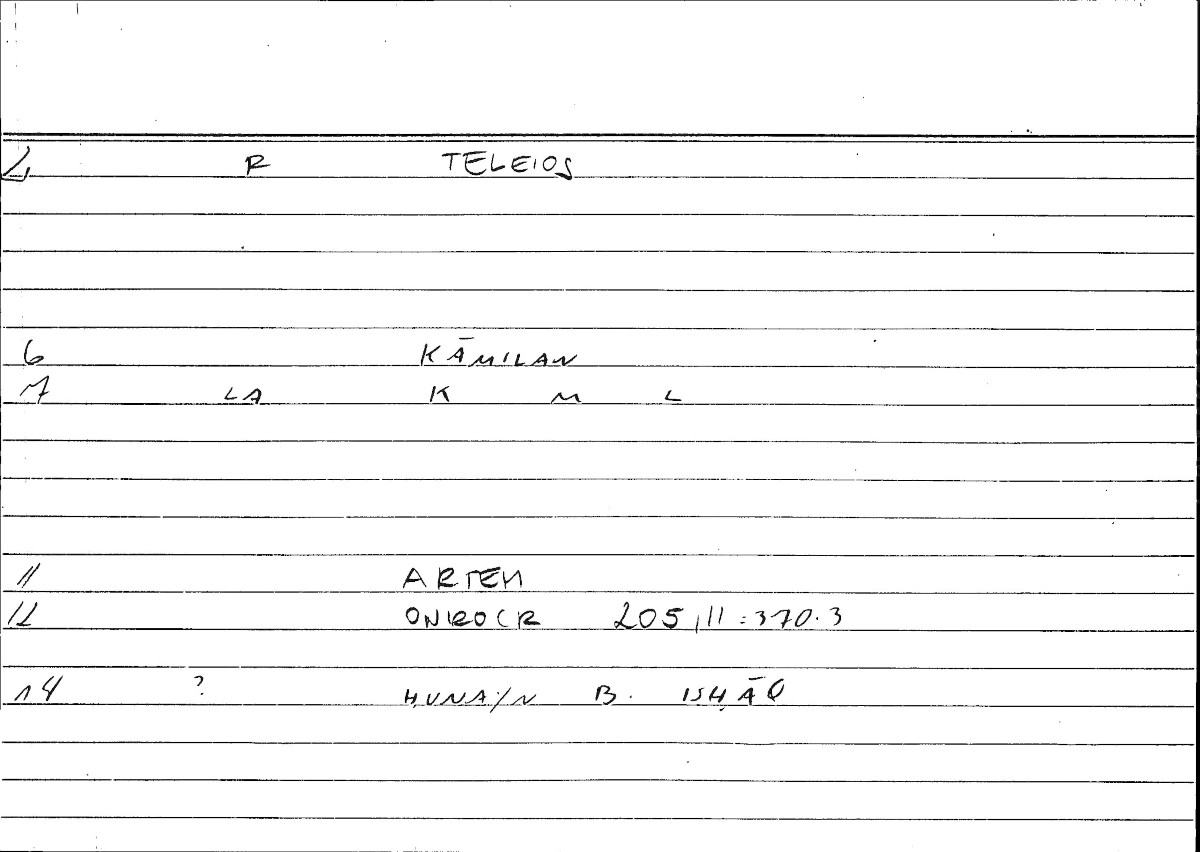 4 R TELEIOS
6 KĀMILAN
7 LA K M L
11 ARTEM
12 ONIROCR 205,11:370.3
14 ? ḤUNAYN B. ISḤĀQ